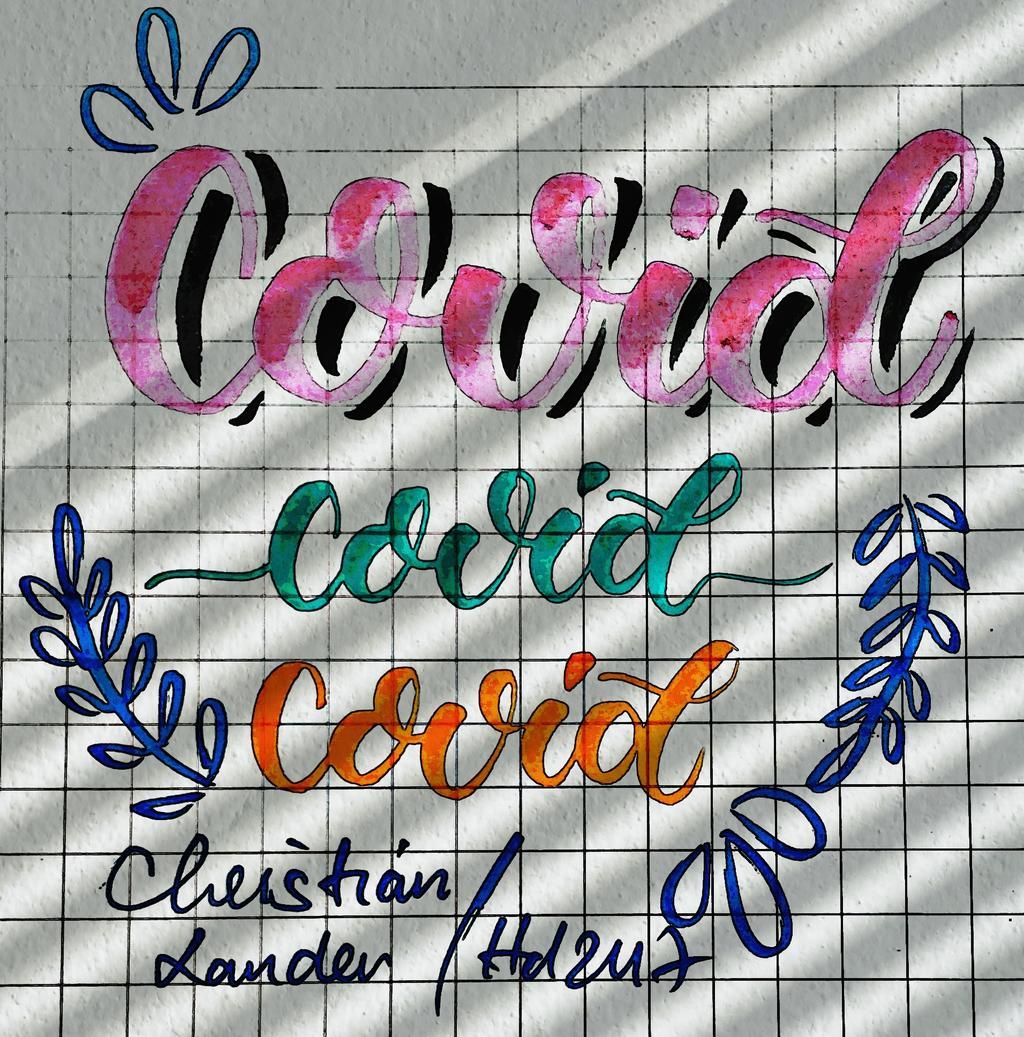 Covid
covid
Covid
Christian /
Lander